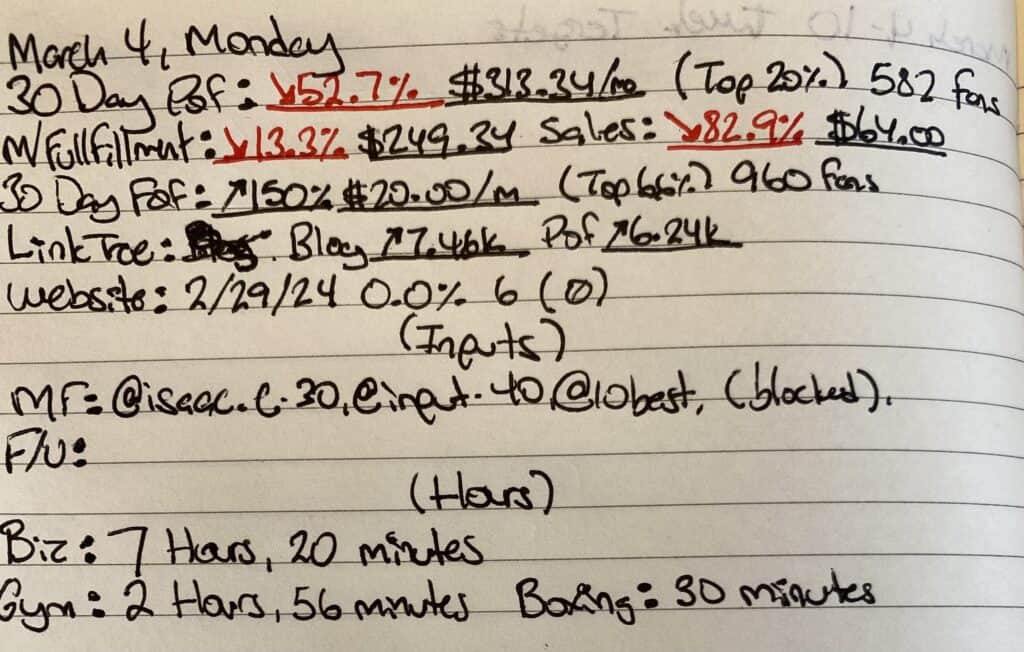 March 4, Monday
30 Day Pof: ↘52.7% $313.34/mo (Top 20%) 582 fans
M/Fullfillment: ↘13.3% $249.34 Sales: ↘82.9% $64.00
30 Day Fof: ↗150% $20.00/m (Top 66%) 960 fans
LinkTree: Blog ↗7.46k Pof ↗6.24k
Website: 2/29/24 0.0% 6 (0)
(Inputs)
MF: @isaac.c.30, @input.40 @10best, (blocked).
F/U:
(Hours)
Biz: 7 Hours, 20 minutes
Gym: 2 Hours, 56 minutes Boxing: 30 minutes